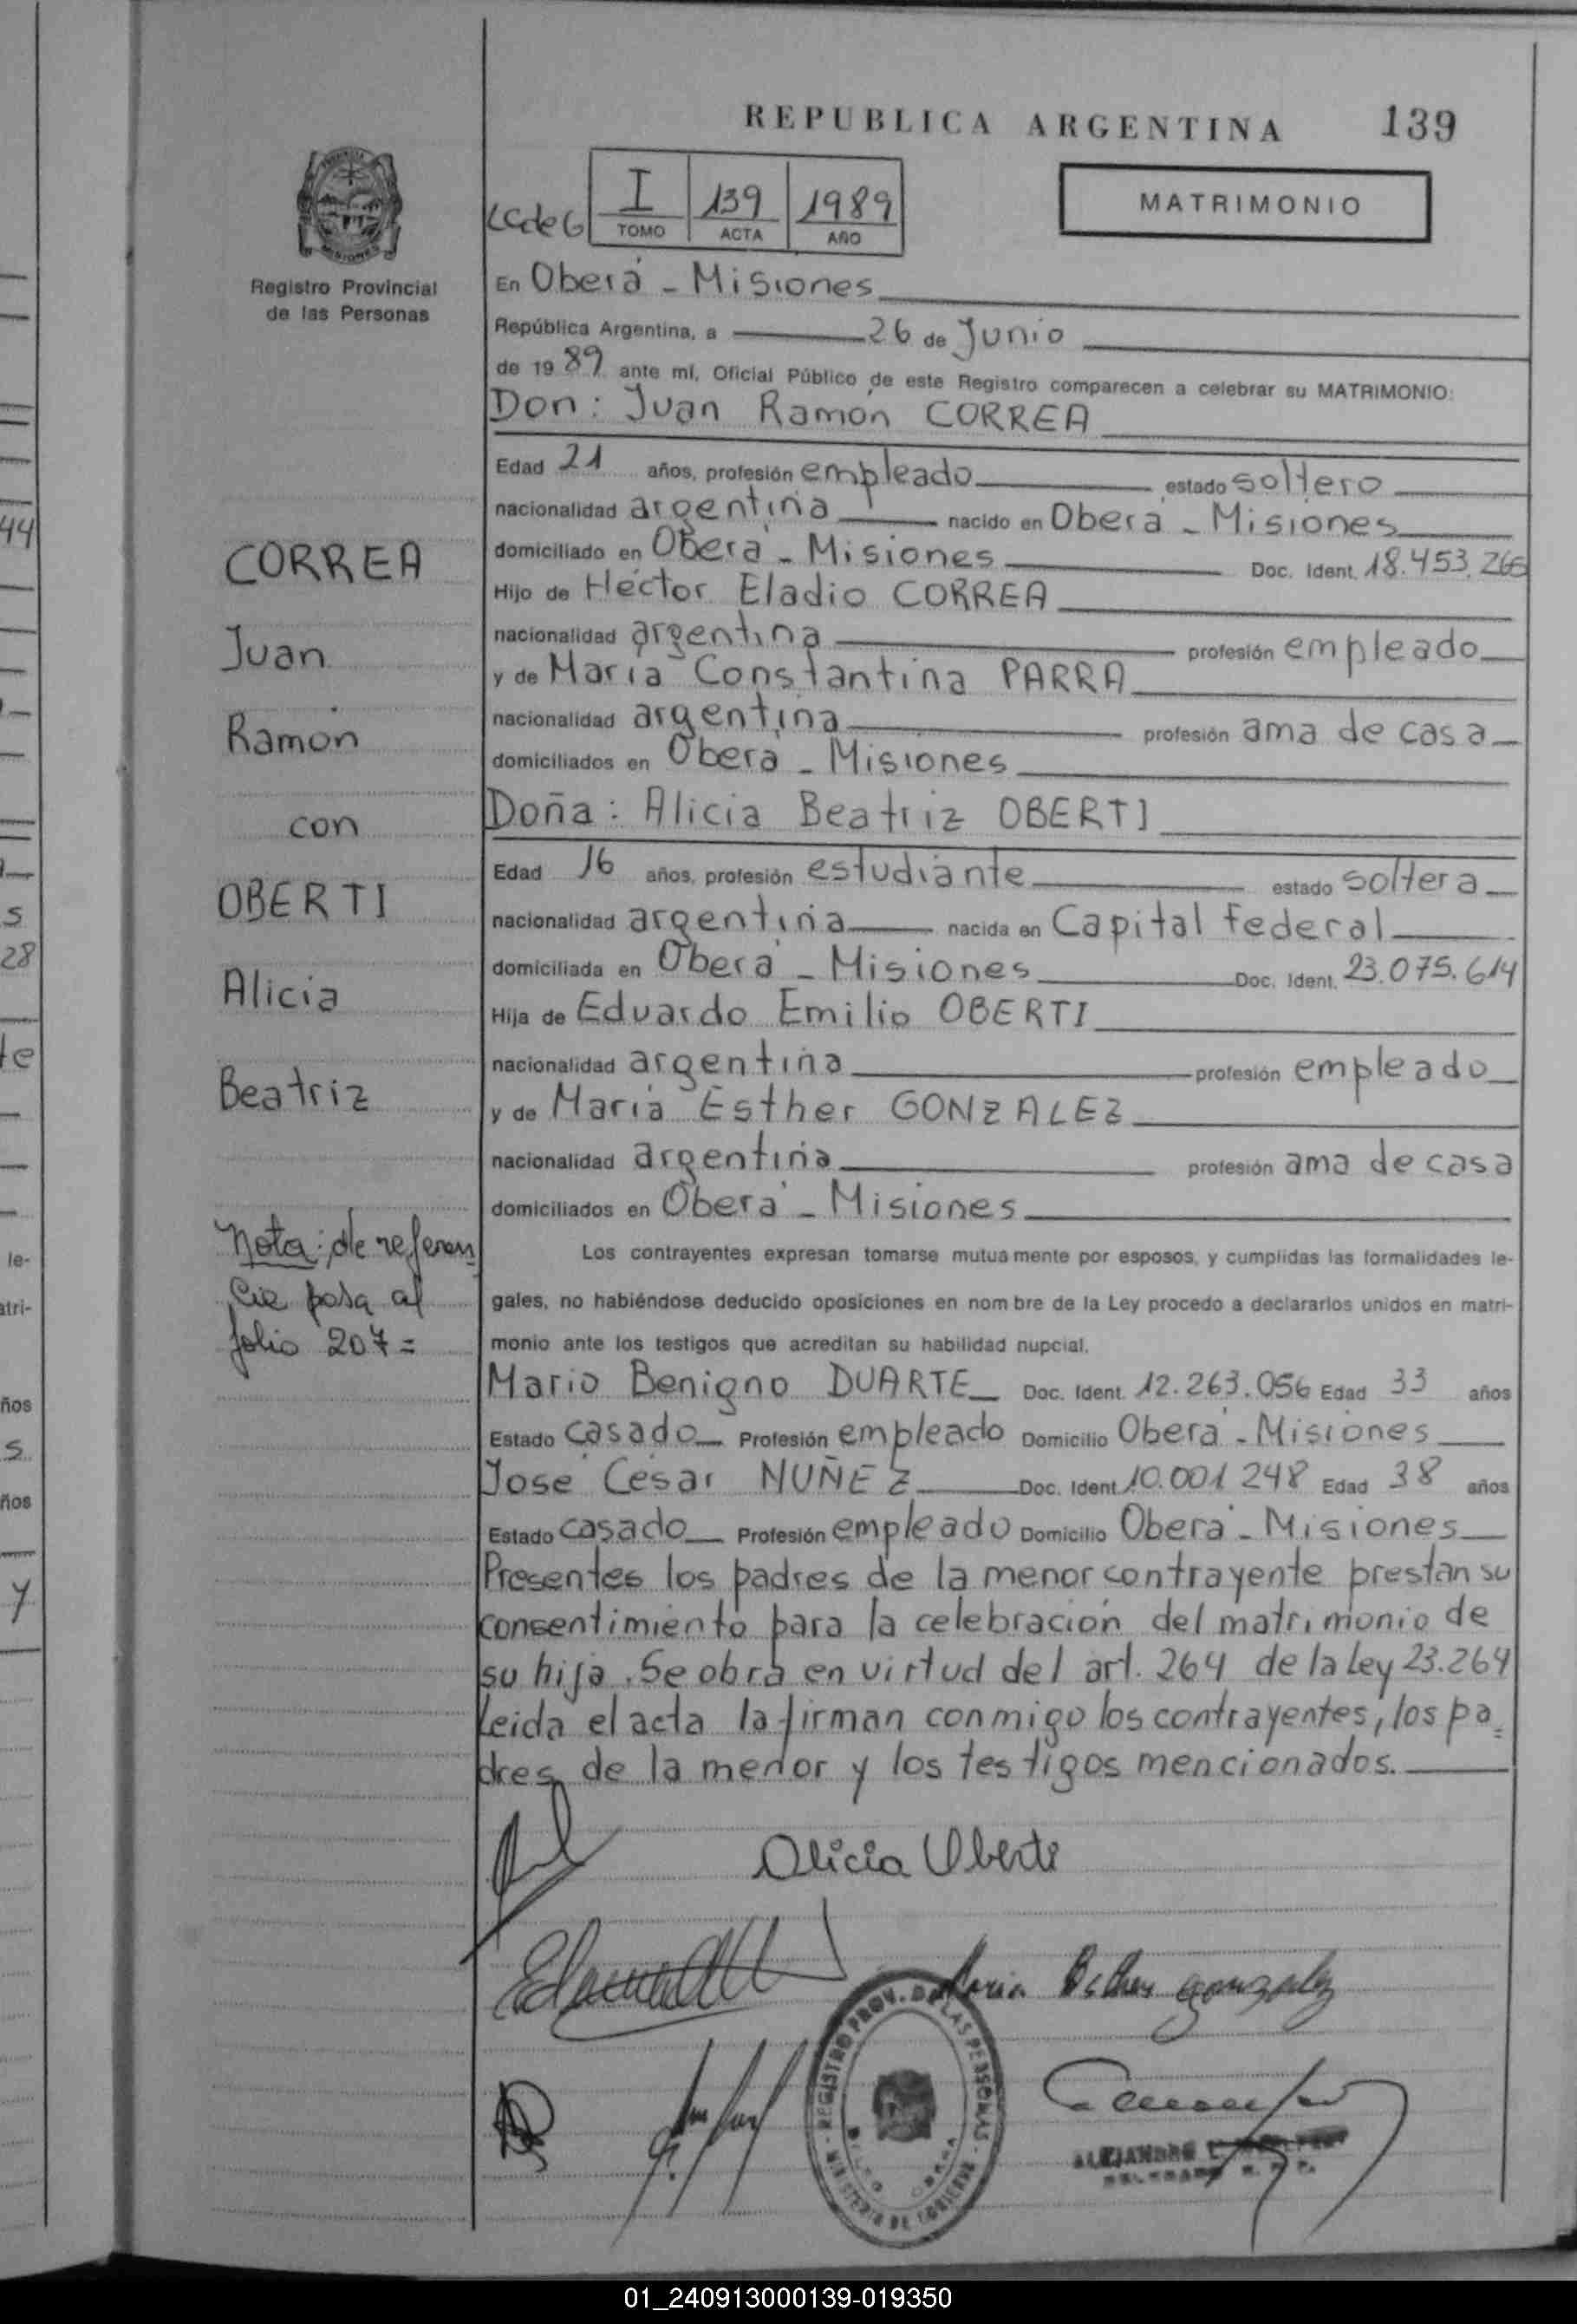 REPUBLICA ARGENTINA 139
MATRIMONIO
I 139 1989
TOMO ACTA AÑO
MISIONES
Registro Provincial
de las Personas
En Oberá - Misiones
República Argentina, a 26 de Junio
de 1989 ante mí, Oficial Público de este Registro comparecen a celebrar su MATRIMONIO:
Don: Juan Ramón CORREA
Edad 21 años, profesión empleado estado soltero
nacionalidad argentina nacido en Oberá - Misiones
domiciliado en Oberá - Misiones Doc. Ident. 18.453.266
Hijo de Héctor Eladio CORREA
nacionalidad argentina profesión empleado
y de María Constantina PARRA
nacionalidad argentina profesión ama de casa
domiciliados en Oberá - Misiones
Doña: Alicia Beatriz OBERTI
Edad 16 años, profesión estudiante estado soltera
nacionalidad argentina nacida en Capital Federal
domiciliada en Oberá - Misiones Doc. Ident. 23.075.614
Hija de Eduardo Emilio OBERTI
nacionalidad argentina profesión empleado
y de María Esther GONZALEZ
nacionalidad argentina profesión ama de casa
domiciliados en Oberá - Misiones
Los contrayentes expresan tomarse mutuamente por esposos, y cumplidas las formalidades le-
gales, no habiéndose deducido oposiciones en nombre de la Ley procedo a declararlos unidos en matri-
monio ante los testigos que acreditan su habilidad nupcial.
Mario Benigno DUARTE Doc. Ident. 12.263.056 Edad 33 años
Estado casado Profesión empleado Domicilio Oberá - Misiones
José César NUÑEZ Doc. Ident 10.001 248 Edad 38 años
Estado casado Profesión empleado Domicilio Oberá - Misiones
Presentes los padres de la menor contrayente prestan su
consentimiento para la celebración del matrimonio de
su hija. Se obra en virtud del art. 264 de la Ley 23.264
Leida el acta la firman conmigo los contrayentes, los pa=
dres de la menor y los testigos mencionados.
CORREA
Juan
Ramón
con
OBERTI
Alicia
Beatriz
Nota: de referen
cia pasa al
folio 207=
Alicia Oberti
Maria Esther gonzalez
REGISTRO PROV. DE LAS PERSONAS
MINISTERIO DE GOBIERNO
ALEJANDRO
44
s
28
te
le-
atri-
ños
s
ños
y
01_240913000139-019350